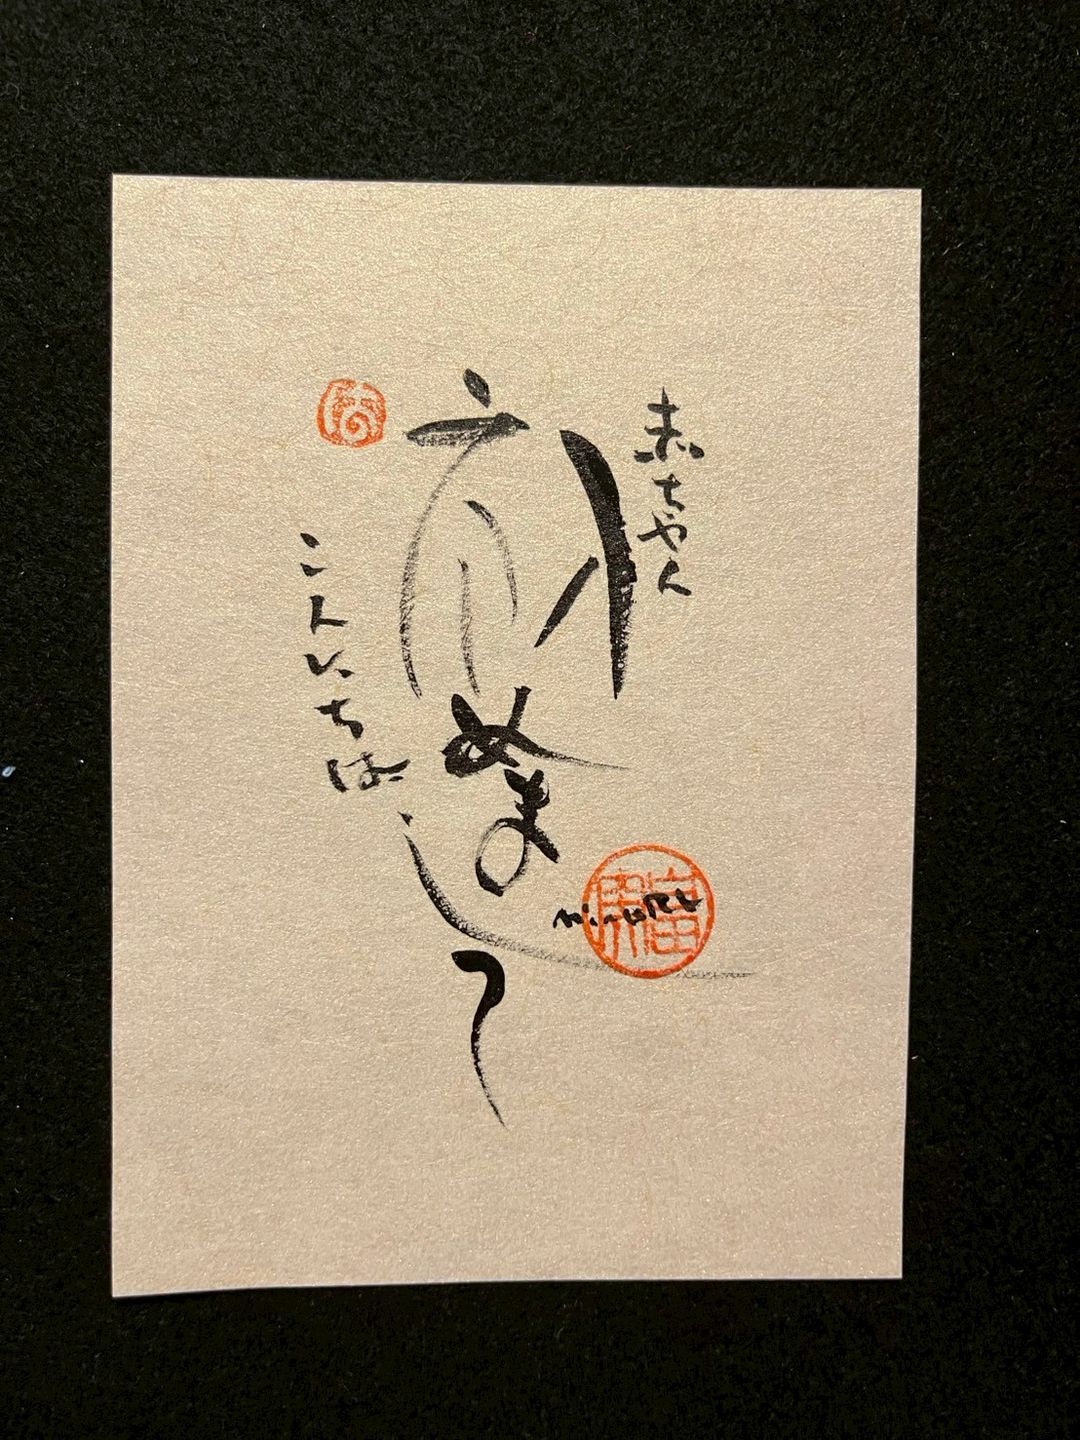 赤ちゃん
初めまして
こんにちは